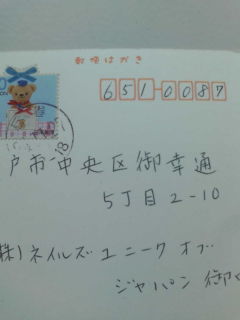 郵便はがき
651-0087
戸市中央区御幸通
5丁目2-10
株)ネイルズユニークオブ
ジャパン 御